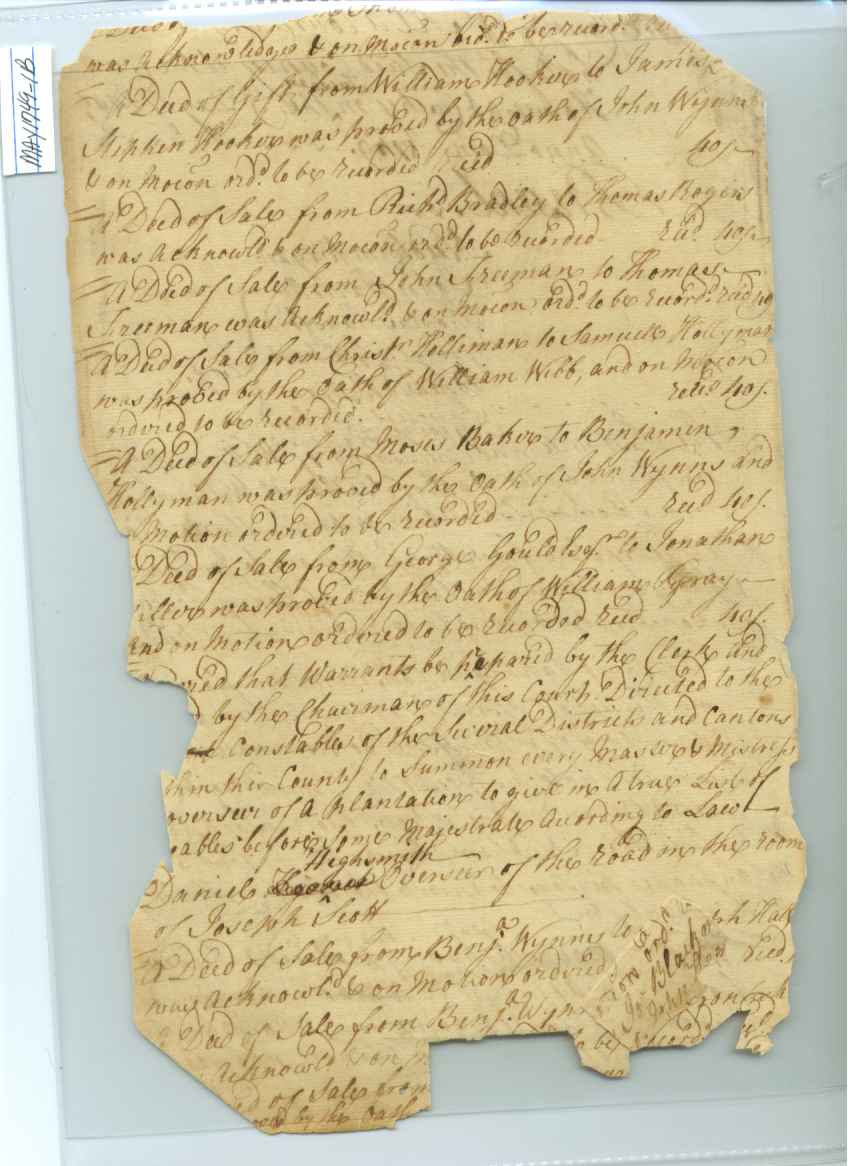 MAY 1749-1B
was Acknowledged & on Mocon ord.d to be record.d
A Deed of Gift from William Hooker to James
Stephen Hooker was proved by the Oath of John Wynns
& on Mocon ord.d to be recorded recd 40/-
A Deed of Sale from Rich.d Bradley to Thomas Rogers
was Acknowl.d & on Mocon ord.d to be recorded Rec.d 40/-
A Deed of Sale from John Freeman to Thomas
Freeman was Acknowl.d & on Mocon ord.d to be record.d rec.d 40
A Deed of Sale from Christ.r Holliman to Samuell Hollyman
was proved by the Oath of William Webb, and on Mocon
ordered to be recorded. rec.d 40/.
A Deed of Sale from Moses Baker to Benjamin
Hollyman was proved by the Oath of John Wynns and
Motion ordered to be recorded rec.d 40/.
Deed of Sale from George Gould Esq.r to Jonathan
was proved by the Oath of William Gray
And on Motion ordered to be recorded recd 40/.
that Warrants be prepared by the Clerk and
by the Chairman of this Court Directed to the
Constables of the Several Districts and Cantons
thin this County to Summon every Master & Mistress
overseer of A Plantation to give in A true List of
ables before some Majestrate According to Law
Highsmith
Daniel Overseer of the road in the room
of Joseph Scott
A Deed of Sale from Benj.a Wynns to
was Acknowl.d & on Motion ordered recd.
Deed of Sale from Benj.a Wyn
Acknowld & on
to be record.d
of Sale from
by the Oath